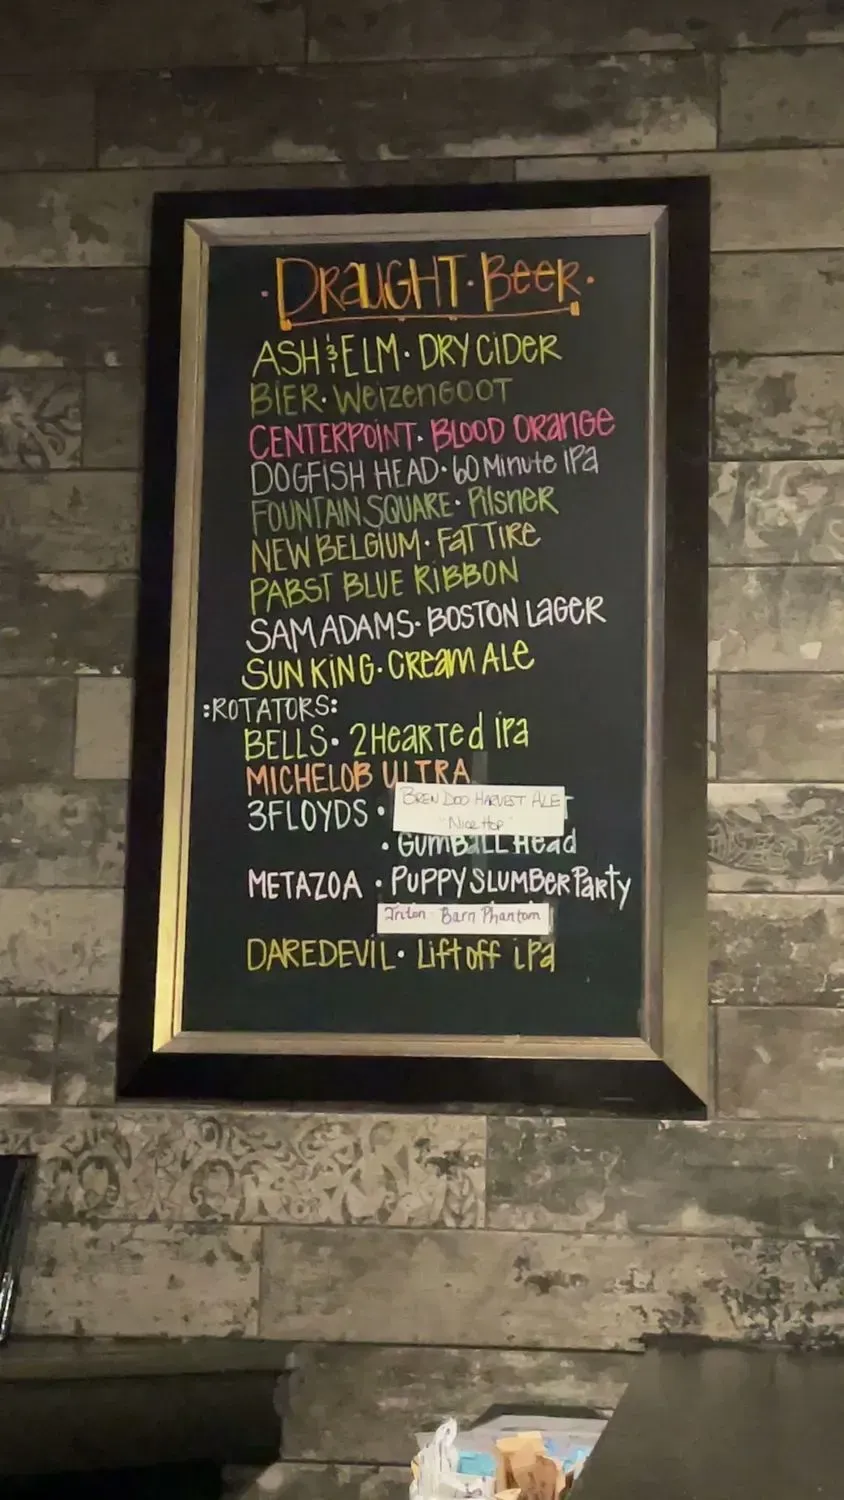 ·DRAUGHT·BEER·
ASH & ELM· DRY CIDER
BIER· WEIZENGOOT
CENTERPOINT· BLOOD ORANGE
DOGFISH HEAD· 60 MINUTE IPA
FOUNTAIN SQUARE· PILSNER
NEW BELGIUM· FAT TIRE
PABST BLUE RIBBON
SAM ADAMS· BOSTON LAGER
SUN KING· CREAM ALE
:ROTATORS:
BELLS· 2HEARTED IPA
MICHELOB ULTRA
BREN DOO HARVEST ALE
3FLOYDS ·
"NICE HOP"
· GUMBALL HEAD
METAZOA · PUPPY SLUMBER PARTY
Triton - Barn Phantom
DAREDEVIL· LIFT OFF IPA